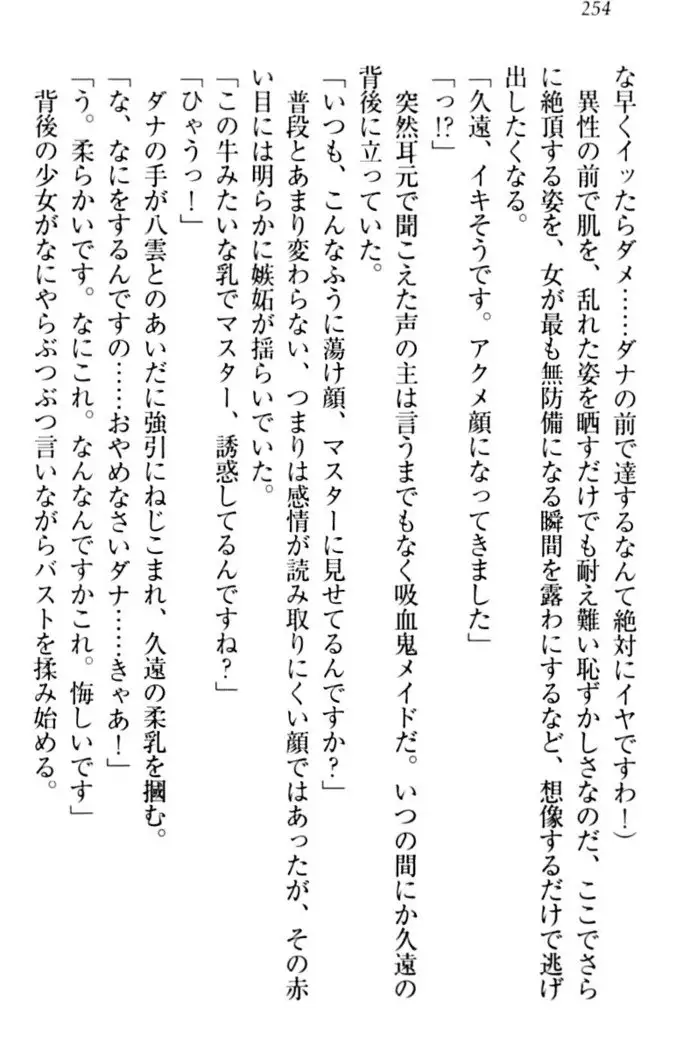 254
な早くイッたらダメ……ダナの前で達するなんて絶対にイヤですわ！）
　異性の前で肌を、乱れた姿を晒すだけでも耐え難い恥ずかしさなのだ、ここでさら
に絶頂する姿を、女が最も無防備になる瞬間を露わにするなど、想像するだけで逃げ
出したくなる。
「久遠、イキそうです。アクメ顔になってきました」
「っ!?」
　突然耳元で聞こえた声の主は言うまでもなく吸血鬼メイドだ。いつの間にか久遠の
背後に立っていた。
「いつも、こんなふうに蕩け顔、マスターに見せてるんですか？」
　普段とあまり変わらない、つまりは感情が読み取りにくい顔ではあったが、その赤
い目には明らかに嫉妬が揺らいでいた。
「この牛みたいな乳でマスター、誘惑してるんですね？」
「ひゃうっ！」
　ダナの手が八雲とのあいだに強引にねじこまれ、久遠の柔乳を摑む。
「な、なにをするんですの……おやめなさいダナ……きゃあ！」
「う。柔らかいです。なにこれ。なんなんですかこれ。悔しいです」
　背後の少女がなにやらぶつぶつ言いながらバストを揉み始める。